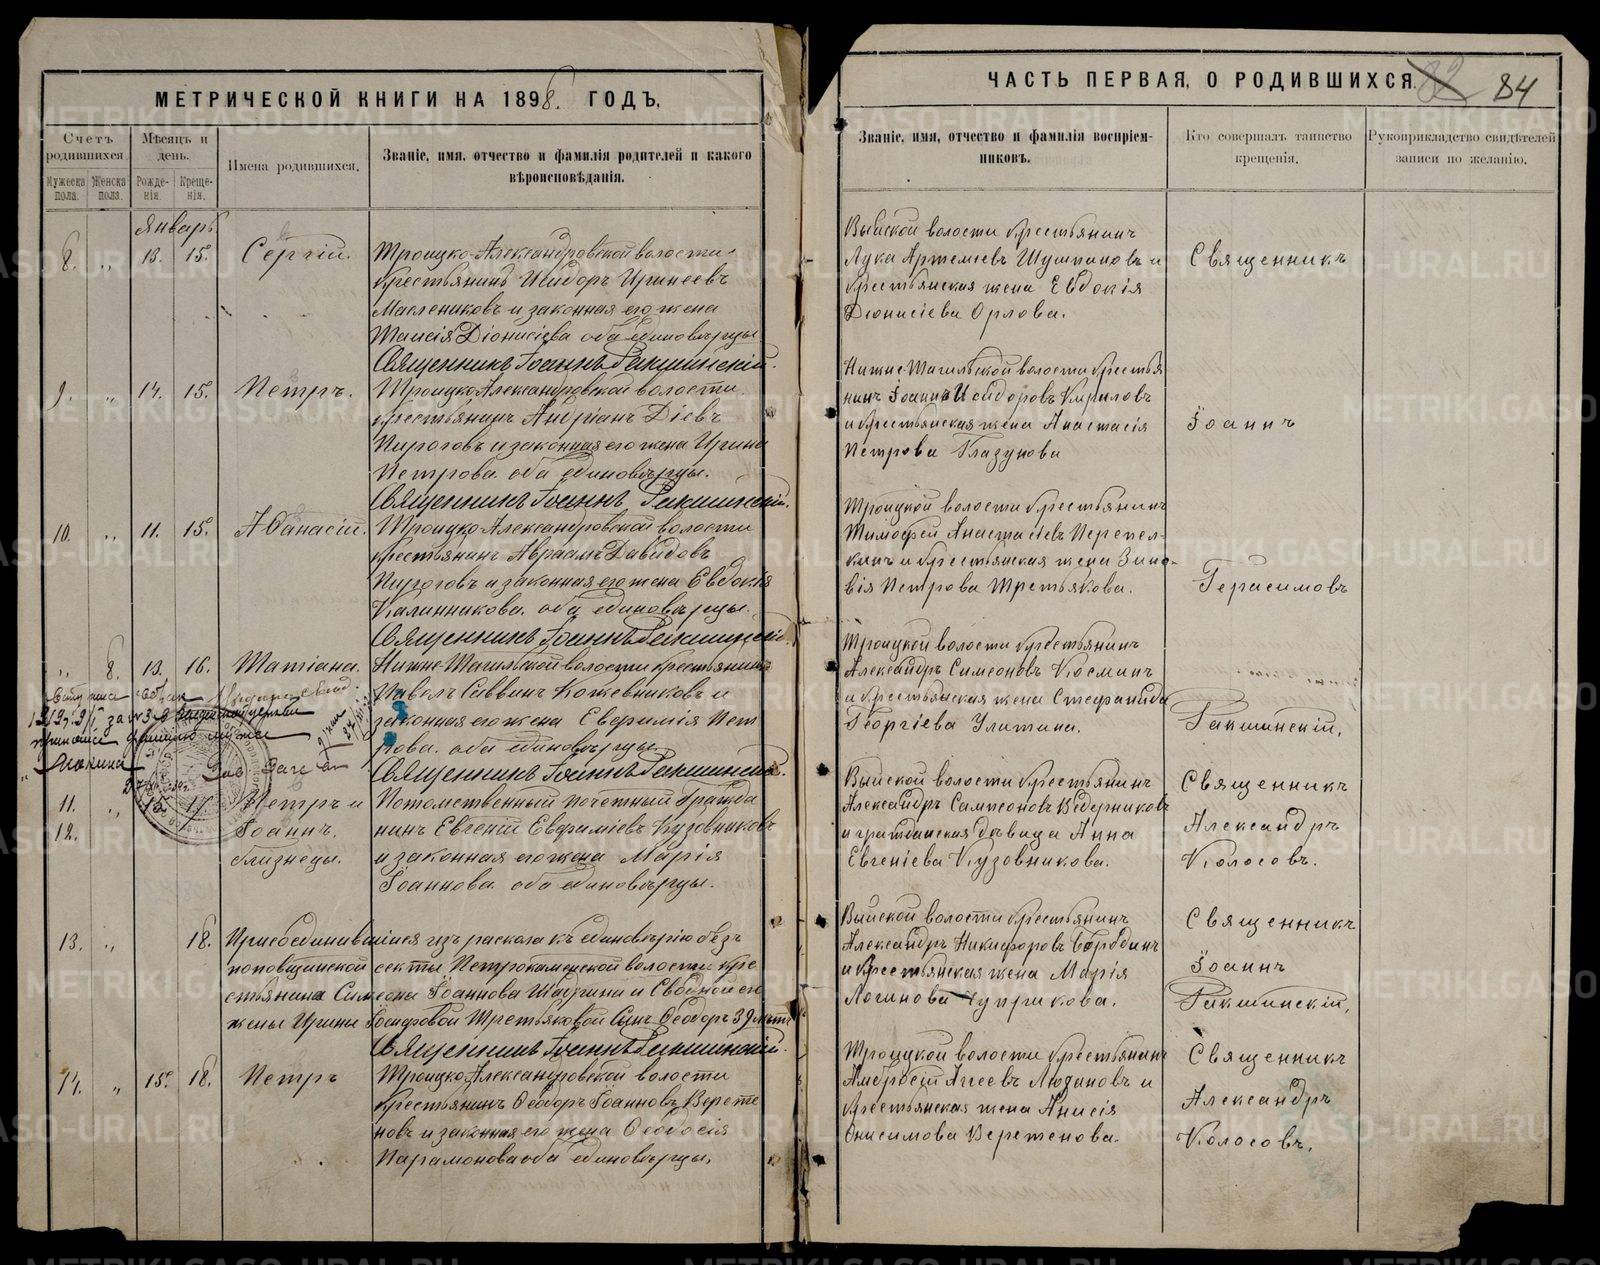 МЕТРИЧЕСКОЙ КНИГИ НА 1898. ГОДЪ,
Счетъ родившихся.
Мужеска пола.
Женска пола.
Мѣсяцъ и день.
Рожденія.
Крещенія.
Имена родившихся.
Званіе, имя, отчество и фамилія родителей и какого
вѣроисповѣданія.
Январь
8. „ 13. 15. Сергій.
Троицко-Александровской волости
крестьянинъ Исидоръ Иринеевъ
Маслениковъ и законная его жена
Таисія Діонисіева оба единовѣрцы.
Священникъ Іоаннъ Ракшинскій.
9. „ 14. 15. Петръ.
Троицко-Александровской волости
крестьянинъ Андріанъ Діевъ
Пироговъ и законная его жена Ирина
Петрова. оба единовѣрцы.
Священникъ Іоаннъ Ракшинскій.
10. „ 11. 15. Аѳанасій.
Троицко-Александровской волости
крестьянинъ Авраамъ Давидовъ
Пироговъ и законная его жена Евдокія
Калинникова. оба единовѣрцы.
Священникъ Іоаннъ Ракшинскій.
„ 8. 13. 16. Татіана.
Нижне-Тагильской волости крестьянинъ
Павелъ Саввинъ Кожевниковъ и
законная его жена Евфимія Пет
рова. оба единовѣрцы
Священникъ Іоаннъ Ракшинскій.
11. „ 15. 17. Петръ и
12. Іоаннъ.
близнецы.
Потомственный почетный гражда
нинъ Евгеній Евфиміевъ Кузовниковъ
и законная его жена Марія
Іоаннова. оба единовѣрцы.
13. „ 18. Присоединившійся изъ раскола къ единовѣрію без
поповщинской секты Петрокаменской волости кре
стьянина Симеона Іоаннова и Сводной его
жены Ирины Іосифовой Третьяковой Сынъ Ѳеодоръ 39 лѣтъ
Священникъ Іоаннъ Ракшинскій.
14. „ 15. 18. Петръ
Троицко-Александровской волости
крестьянинъ Ѳеодоръ Іоанновъ Верете
новъ и законная его жена Ѳеодосія
Парамонова оба единовѣрцы,
ЧАСТЬ ПЕРВАЯ, О РОДИВШИХСЯ.
84
Званіе, имя, отчество и фамилія воспріем-
никовъ.
Кто совершалъ таинство
крещенія.
Рукоприкладство свидѣтелей
записи по желанію.
Выйской волости крестьянинъ
Лука Артеміевъ и
крестьянская жена Евдокія
Діонисіева Орлова.
Священникъ
Нижне-Тагильской волости крестья
нинъ Іоаннъ Исидоровъ Кириловъ
и крестьянская жена Анастасія
Петрова Глазунова
Іоаннъ
Троицкой волости крестьянинъ
Тимофей Анастасіевъ Перепел-
кинъ и крестьянская жена Зино-
вія Петрова Третьякова.
Герасимовъ
Троицкой волости крестьянинъ
Александръ Симеоновъ Косминъ
и крестьянская жена Стефанида
Георгіева Улитина.
Ракшинскій,
Выйской волости крестьянинъ
Александръ Сампсоновъ Ведерниковъ
и гражданская дѣвица Анна
Евгеніева Кузовникова.
Священникъ
Александръ
Колосовъ.
Выйской волости крестьянинъ
Александръ Никифоровъ Бородинъ
и крестьянская жена Марія
Логинова Чуприкова.
Священникъ
Іоаннъ
Ракшинскій,
Троицкой волости крестьянинъ
Амвросій Аггеевъ и
крестьянская жена Анисія
Онисимова Веретенова.
Священникъ
Александръ
Колосовъ.
METRIKI.GASO-URAL.RU